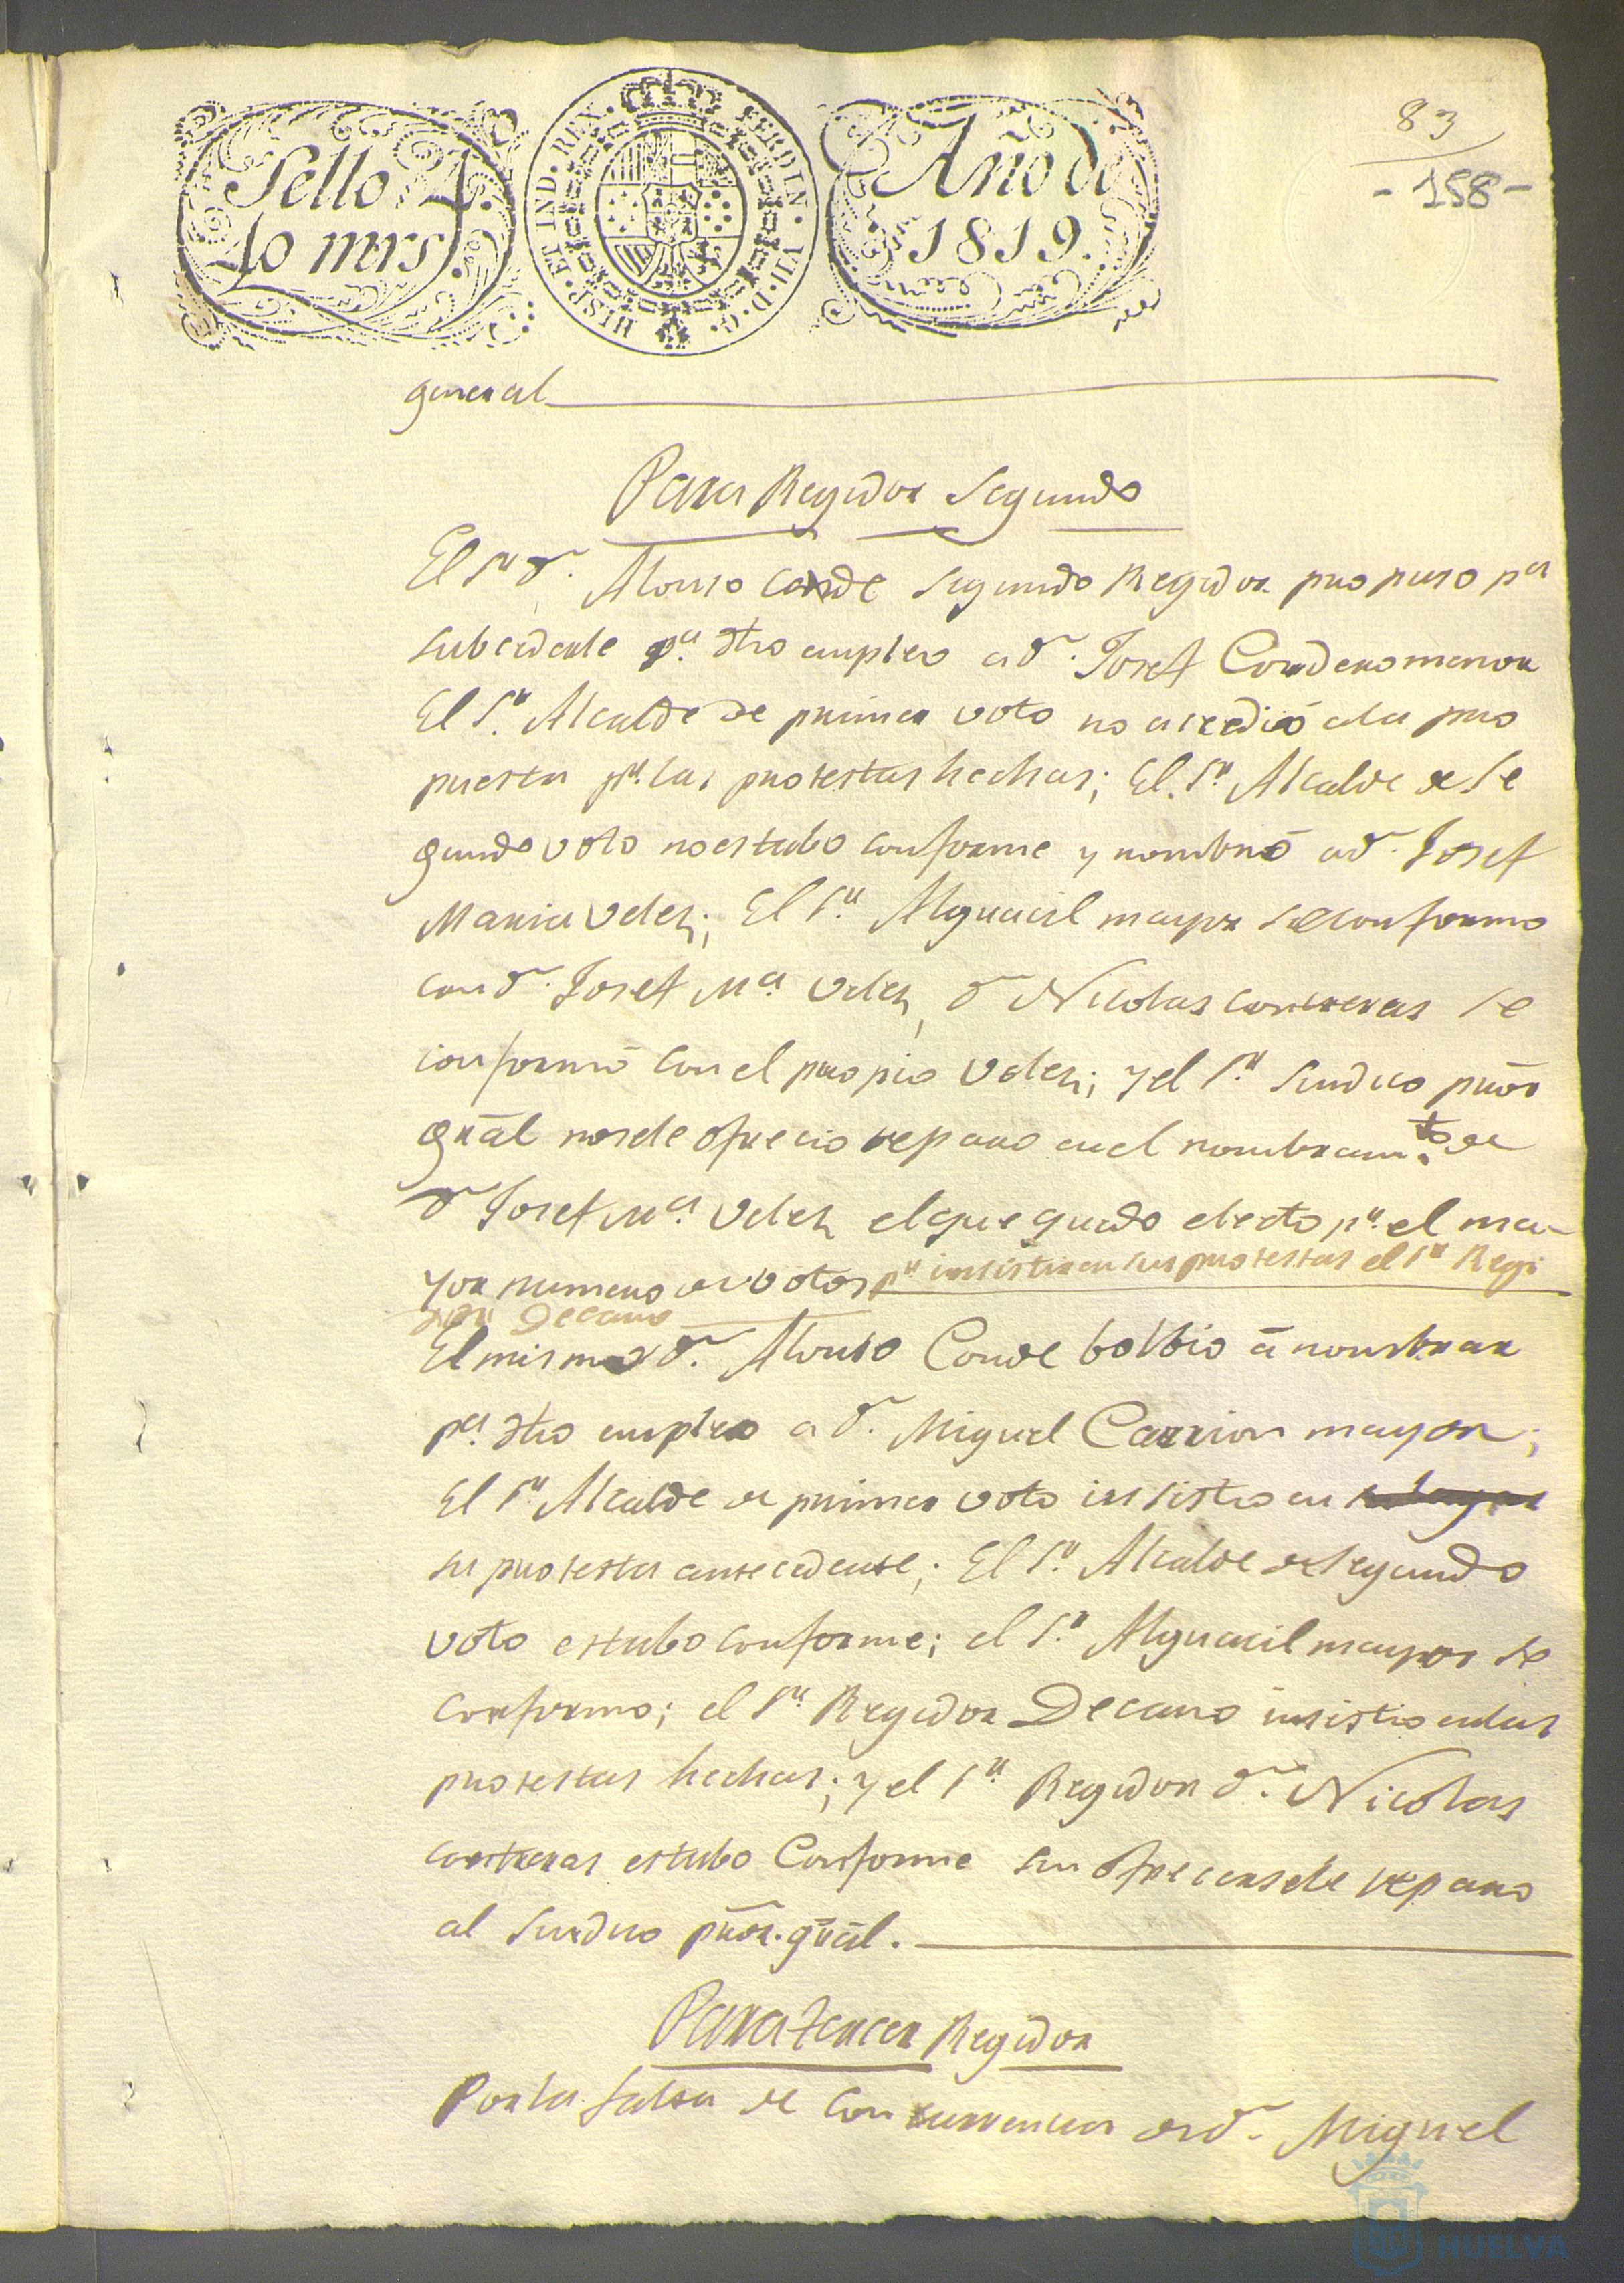 83
- 158 -
Sello 4.º
40 mrs.
HISP. ET IND. REX. FERDIN. VII. D. G.
Año de
1819.
general
Para Regidor Segundo
El Sr. Dn. Alonso Conde Segundo Regidor propuso pa
subcederle pa. dho empleo a dn. Josef Cordero menor
El Sr. Alcalde de primer voto no accedió a la pro
puesta pr. las protestas hechas; El Sr. Alcalde de Se
gundo voto no estubo conforme y nombró a dn. Josef
Maria Velez; El Sr. Alguacil mayor se conformo
con dn. Josef Ma. Velez, dn Nicolas Contreras se
conformó con el propio Velez; y el Sr. Sindico prōr
grāl no se le ofrecio reparo en el nombramto. de
dn Josef Ma. Velez el que quedo electo pr. el ma-
yor numero de votos pr. insistir en sus protestas el Sr. Regi
dor Decano
El mismo dn. Alonso Conde bolbio á nombrar
pa. dho empleo a dn. Miguel Carrion mayor;
El Sr. Alcalde de primer voto insistio en
su protesta antecedente; El Sr. Alcalde de segundo
voto estubo conforme; el Sr. Alguacil mayor se
conformo; el Sr. Regidor Decano insistio en las
protestas hechas; y el Sr. Regidor dn. Nicolas
contreras estubo Conforme sin ofrecersele reparo
al Sindico prōr. grāl.
Para tercer Regidor
Por la falta de concurrencia de dn. Miguel
HUELVA